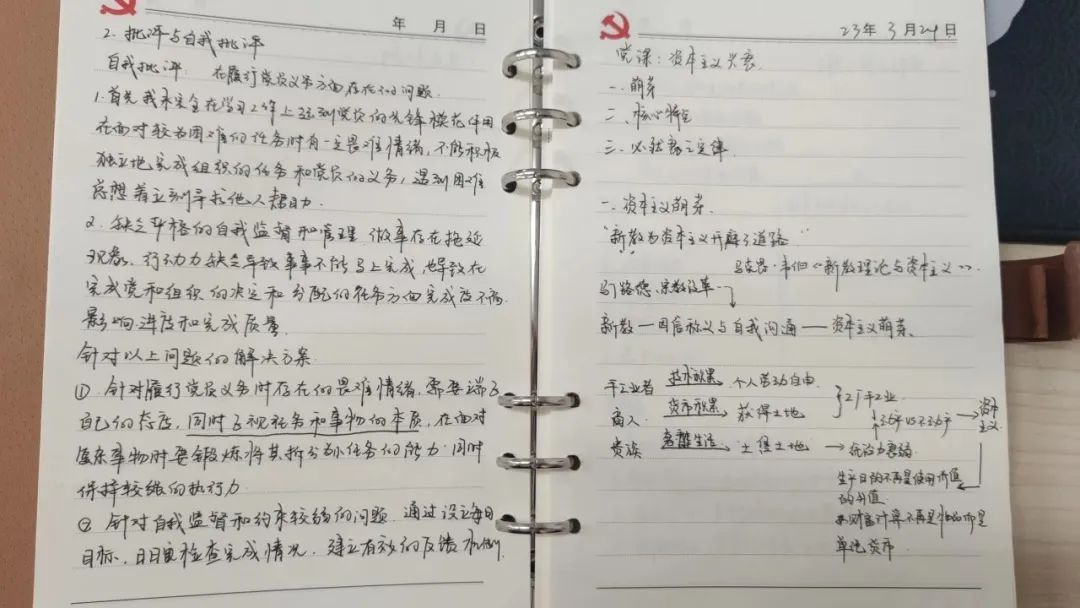 年 月 日
2. 批评与自我批评
自我批评: 在履行党员义务方面存在的问题.
1.首先我未完全在学习工作上达到党员的先锋模范作用
在面对较为困难的任务时有一定畏难情绪,不能积极
独立地完成组织的任务和党员的义务,遇到困难
总想着立刻寻求他人帮助.
2. 缺乏严格的自我监督和管理 做事存在拖延
现象,行动力缺乏导致事事不能马上完成,也导致在
完成党和组织的决定和分配的任务方面完成度不高.
影响进度和完成质量.
针对以上问题的解决方案.
① 针对履行党员义务时存在的畏难情绪,需要端正
自己的态度,同时正视任务和事物的本质,在面对
复杂事物时要锻炼将其拆分为小任务的能力,同时
保持较强的执行力
② 针对自我监督和约束较弱的问题 通过设立每日
目标,日日更检查完成情况,建立有效的反馈机制.
23年 3月24日
党课: 资本主义兴衰.
一. 萌芽
二. 核心特征
三. 必然衰亡定律.
一. 资本主义萌芽.
"新教为资本主义开辟了道路"
马克思·韦伯《新教理论与资本主义》.
马丁路德,宗教改革
新教—因信称义与自我沟通——资本主义萌芽.
手工业者 技术积累 个人劳动自由.
商人 货币积累 获得土地
贵族 奢靡生活 土堡土地 → 统治力衰弱
工厂手工业
资本主义
生产目的不再是使用价值
的价值.
财富计算不再是
单纯货币